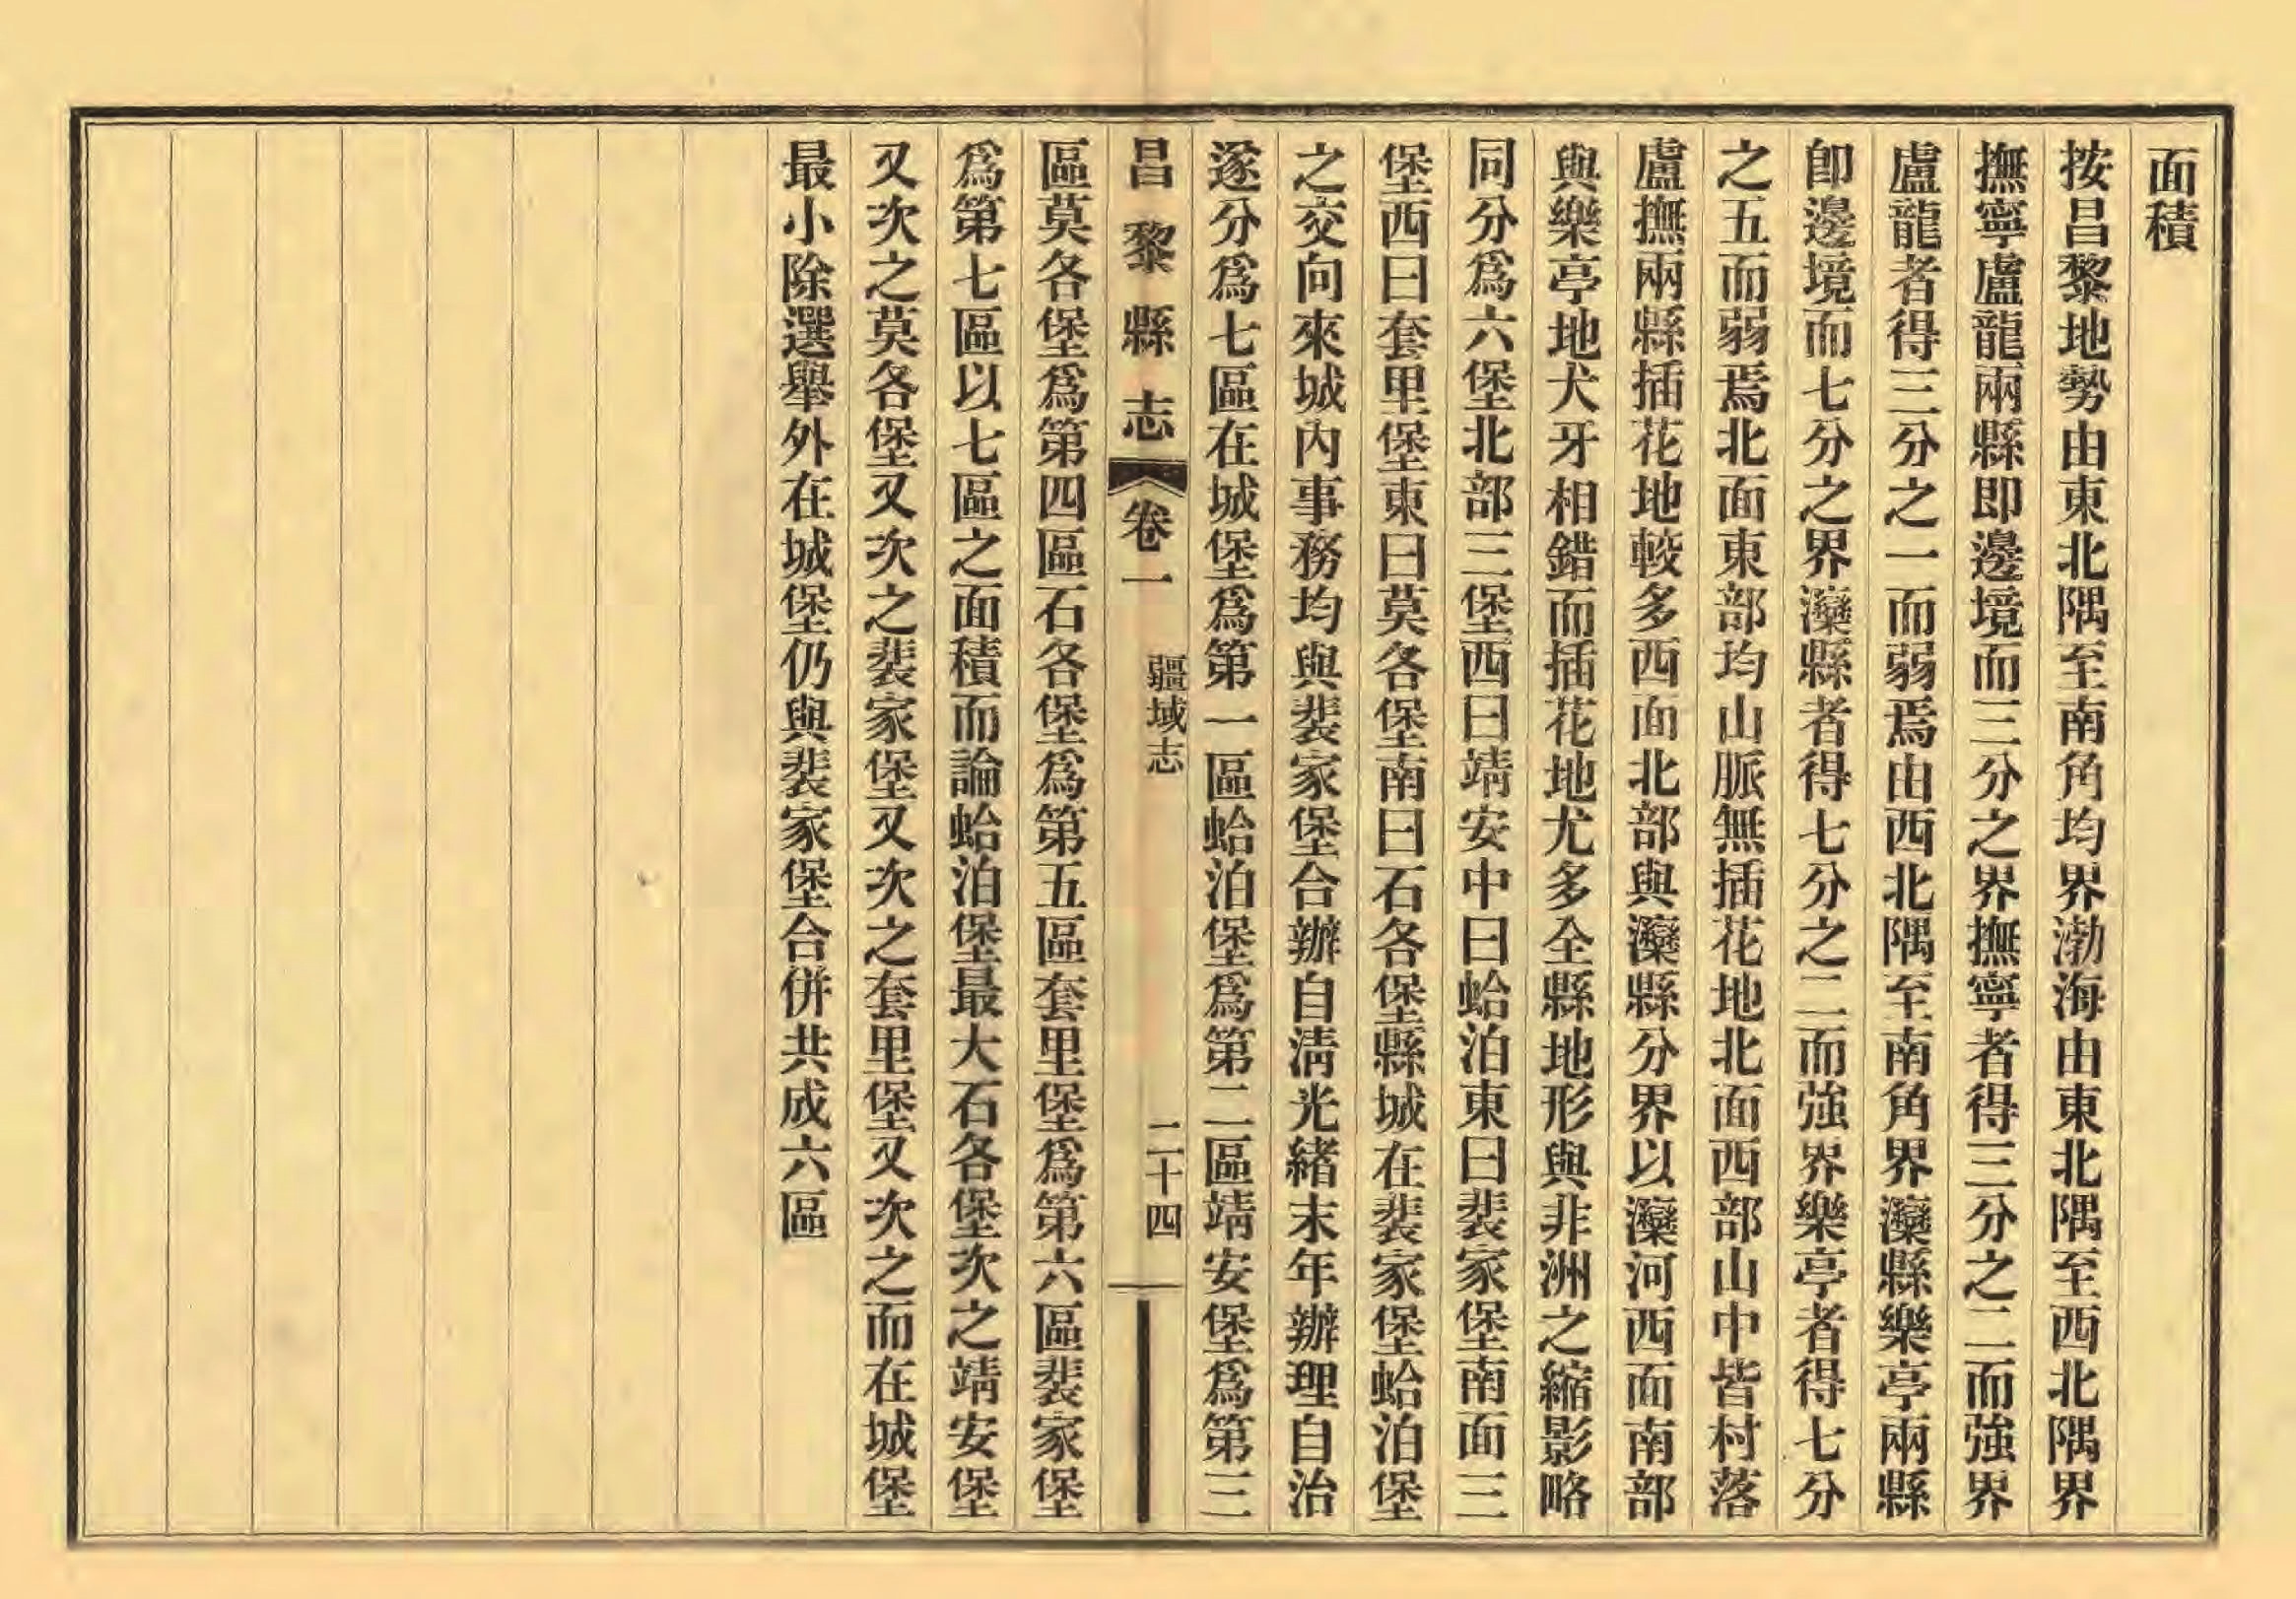 面積
按昌黎地勢由東北隅至南角均界渤海由東北隅至西北隅界
撫寧盧龍兩縣即邊境而三分之界撫寧者得三分之二而強界
盧龍者得三分之一而弱焉由西北隅至南角界灤縣樂亭兩縣
卽邊境而七分之界灤縣者得七分之二而強界樂亭者得七分
之五而弱焉北面東部均山脈無插花地北面西部山中皆村落
盧撫兩縣插花地較多西面北部與灤縣分界以灤河西面南部
與樂亭地犬牙相錯而插花地尤多全縣地形與非洲之縮影略
同分爲六堡北部三堡西曰靖安中曰蛤泊東曰裴家堡南面三
堡西曰套里堡東曰莫各堡南曰石各堡縣城在裴家堡蛤泊堡
之交向來城內事務均與裴家堡合辦自淸光緒末年辦理自治
遂分爲七區在城堡爲第一區蛤泊堡爲第二區靖安堡爲第三
昌黎縣志 卷一 疆域志 二十四
區莫各堡爲第四區石各堡爲第五區套里堡爲第六區裴家堡
爲第七區以七區之面積而論蛤泊堡最大石各堡次之靖安堡
又次之莫各堡又次之裴家堡又次之套里堡又次之而在城堡
最小除選舉外在城堡仍與裴家堡合併共成六區